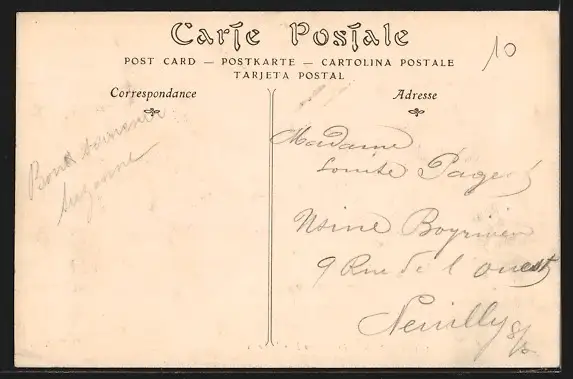 Carte Postale
POST CARD — POSTKARTE — CARTOLINA POSTALE
TARJETA POSTAL
10
Correspondance
Bons souvenirs
Suzanne
Adresse
Madame
Page
Usine
9 Rue de l'ouest
Neuilly s/s